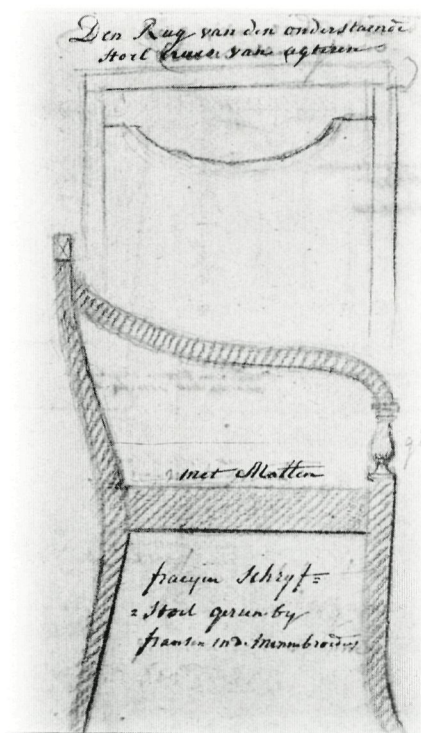 Den Rug van den onderstaende
Stoel van agteren
met Matten
fraeyen Schryf=
= Stoel gesien by
fransen in d.